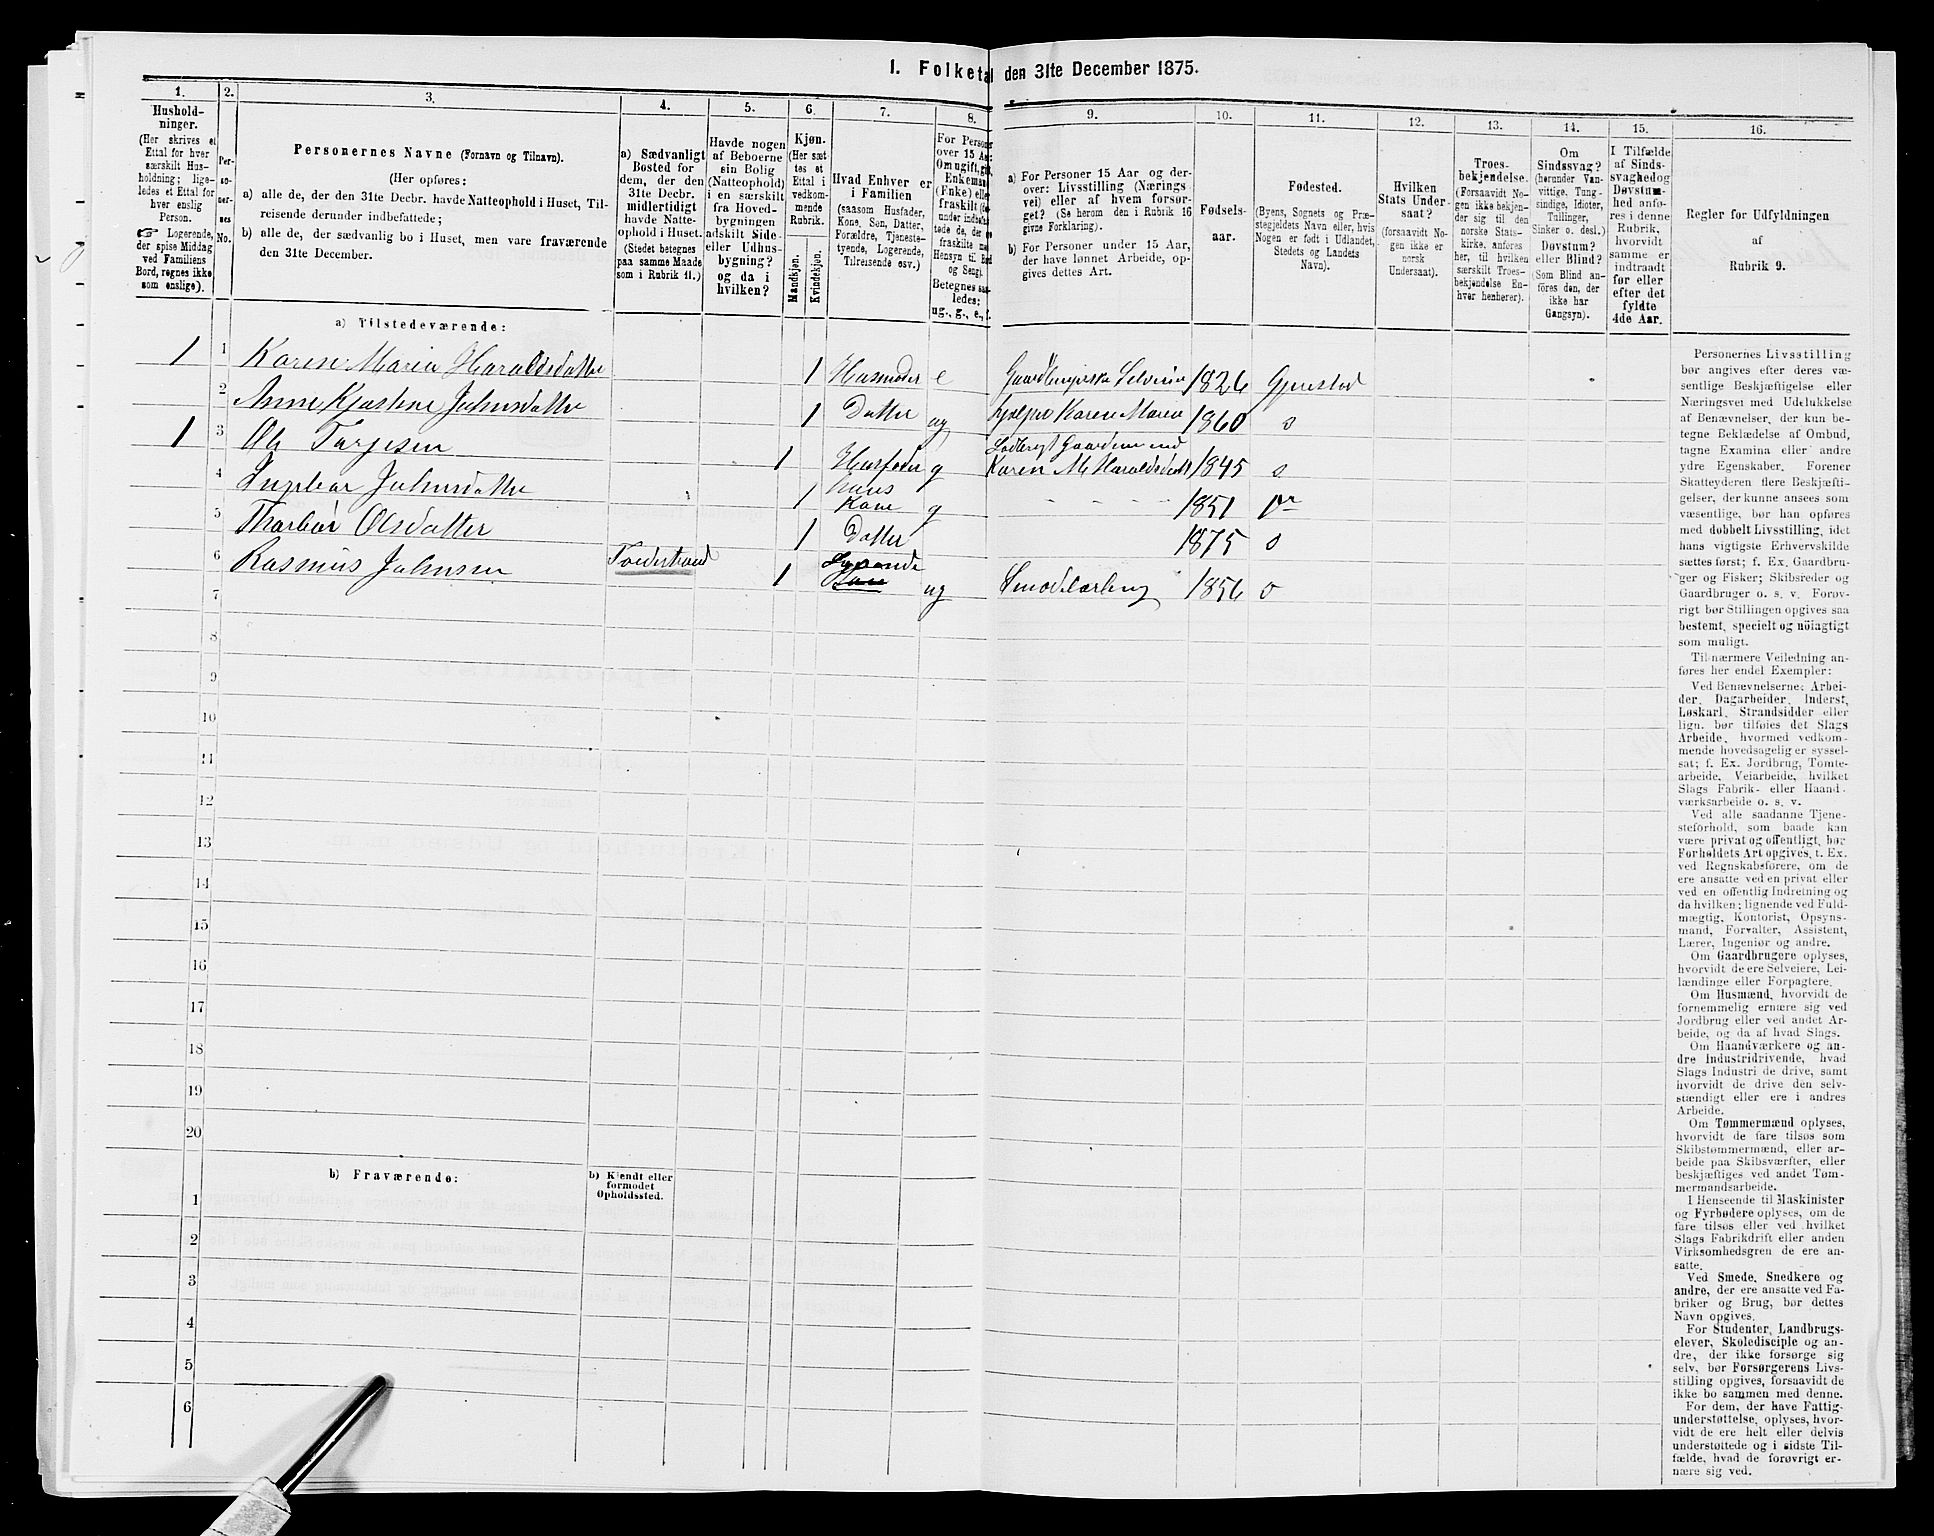 1. Folketal den 31te December 1875.
1.
Hushold-
ninger.
(Her skrives et
Ettal for hver
særskilt Hus-
holdning; lige-
ledes et Ettal for
hver enslig
Person.
☞ Logerende,
der spise Middag
ved Familiens
Bord, regnes ikke
som enslige).
2.
Per-
so-
ner-
nes
No.
3.
Personernes Navne (Fornavn og Tilnavn).
(Her opføres:
a) alle de, der den 31te Decbr. havde Natteophold i Huset, Til-
reisende derunder indbefattede;
b) alle de, der sædvanlig bo i Huset, men vare fraværende
den 31te December.
4.
a) Sædvanligt
Bosted for
dem, der den
31te Decbr.
midlertidigt
havde Natte-
ophold i Huset.
(Stedet betegnes
paa samme Maade
som i Rubrik 11.)
5.
Havde nogen
af Beboerne
sin Bolig
(Natteophold)
i en særskilt
fra Hoved-
bygningen
adskilt Side-
eller Udhus-
bygning?
og da i
hvilken?
6.
Kjøn.
(Her sæt-
tes et
Ettal i
vedkom-
mende
Rubrik.
Mandkjøn.
Kvindekjøn.
7.
Hvad Enhver er
i Familien
(saasom Husfader,
Kone, Søn, Datter,
Forældre, Tjeneste-
tyende, Logerende,
Tilreisende osv.)
8.
For Personer
over 15 Aar:
Om ugift, gift,
Enkemand
(Enke) eller
fraskilt
Hensyn til Bord
og Seng).
Betegnes saa-
ledes:
ug., g., e., f.
9.
a) For Personer 15 Aar og der-
over: Livsstilling (Nærings
vei) eller af hvem forsør-
get? (Se herom den i Rubrik 16
givne Forklaring).
b) For Personer under 15 Aar,
der have lønnet Arbeide, op-
gives dettes Art.
10.
Fødsels-
aar.
11.
Fødested.
(Byens, Sognets og Præ-
stegjeldets Navn eller, hvis
Nogen er født i Udlandet,
Stedets og Landets
Navn).
12.
Hvilken
Stats Under-
saat?
(forsaavidt No-
gen ikke er
norsk
Undersaat).
13.
Troes-
bekjendelse.
(Forsaavidt No-
gen ikke bekjen-
der sig til den
norske Stats-
kirke, anføres
her, til hvilken
særskilt Troes-
bekjendelse En-
hver henhører).
14.
Om
Sindssvag?
(herunder Van-
vittige, Tung-
sindige, Idioter,
Tullinger,
Sinker o. desl.)
Døvstum?
eller Blind?
(Som Blind an-
føres den, der
ikke har
Gangsyn).
15.
I Tilfælde
af Sinds-
svaghed og
Døvstum-
hed anfø-
res i denne
Rubrik,
hvorvidt
samme er
indtraadt
før eller
efter det
fyldte
4de Aar.
16.
Regler for Udfyldningen
af
Rubrik 9.
a) Tilstedeværende:
1 1 Karen Maria Haraldsdatter 1 Husmoder e Selveier 1826 Gjerestad
2 Anne Kjestine Johnsdatter 1 Datter ug hjelper Karen Maria 1860 o
1 3 Ole Tarjesen 1 Husfader g Gaarden med
Karen M Haraldsdatt 1845 o
4 Johnsdatter 1 hans
Kone g - - - - 1851 Do
5 Thorbør Olsdatter 1 Datter 1875 o
6 Rasmus Johnsen Tvedestrand 1 ug 1856 o
7
8
9
10
11
12
13
14
15
16
17
18
19
20
b) Fraværende:
b) Kjendt eller
formodet
Opholdssted.
1
2
3
4
5
6
Personernes Livsstilling
bør angives efter deres væ-
sentlige Beskjæftigelse eller
Næringsvei med Udelukkelse
af Benævnelser, der kun be-
tegne Beklædelse af Ombud,
tagne Examina eller andre
ydre Egenskaber. Forener
Skatteyderen flere Beskjæfti-
gelser, der kunne ansees som
væsentlige, bør han opføres
med dobbelt Livsstilling, idet
hans vigtigste Erhvervskilde
sættes først; f. Ex. Gaardbru-
ger og Fisker; Skibsreder og
Gaardbruger o. s. v. Forøv-
rigt bør Stillingen opgives saa
bestemt, specielt og nöiagtigt
som muligt.
Til nærmere Veiledning an-
føres her endel Exempler:
Ved Benævnelserne: Arbei-
der, Dagarbeider, Inderst,
Løskarl, Strandsidder eller
lign. bør tilføies det Slags
Arbeide, hvormed vedkom-
mende hovedsagelig er syssel-
sat; f. Ex. Jordbrug, Tomte-
arbeide, Veiarbeide, hvilket
Slags Fabrik- eller Haand-
værksarbeide o. s. v.
Ved alle saadanne Tjene-
steforhold, som baade kan
være privat og offentligt, bør
Forholdets Art opgives, t. Ex.
ved Regnskabsførere, om de
ere ansatte ved en privat eller
ved en offentlig Indretning og
da hvilken; lignende ved Fuld-
mægtig, Kontorist, Opsyns-
mand, Forvalter, Assistent,
Lærer, Ingeniør og andre.
Om Gaardbrugere oplyses,
hvorvidt de ere Selveiere, Lei-
lændinge eller Forpagtere.
Om Husmænd, hvorvidt de
fornemmelig ernære sig ved
Jordbrug eller ved andet Ar-
beide, og da af hvad Slags.
Om Haandværkere og an-
dre Industridrivende, hvad
Slags Industri de drive, samt
hvorvidt de drive den selv-
stændigt eller ere i andres
Arbeide.
Om Tømmermænd oplyses,
hvorvidt de fare tilsøs som
Skibstømmermænd, eller ar-
beide paa Skibsværfter, eller
beskjæftiges ved andet Tøm-
mermandsarbeide.
I Henseende til Maskinister
og Fyrbødere oplyses, om de
fare tilsøs eller ved hvilket
Slags Fabrikdrift eller anden
Virksomhedsgren de ere an-
satte.
Ved Smede, Snedkere og
andre, der ere ansatte ved Fa-
briker og Brug, bør dettes
Navn opgives.
For Studenter, Landbrugs-
elever, Skoledisciple og an-
dre, der ikke forsørge sig
selv, bør Forsørgerens Livs-
stilling opgives, forsaavidt de
ikke bo sammen med denne.
For dem, der have Fattig-
understøttelse, oplyses, hvor-
vidt de ere helt eller delvis
understøttede og i sidste Til-
fælde, hvad de forøvrigt er-
nære sig ved.